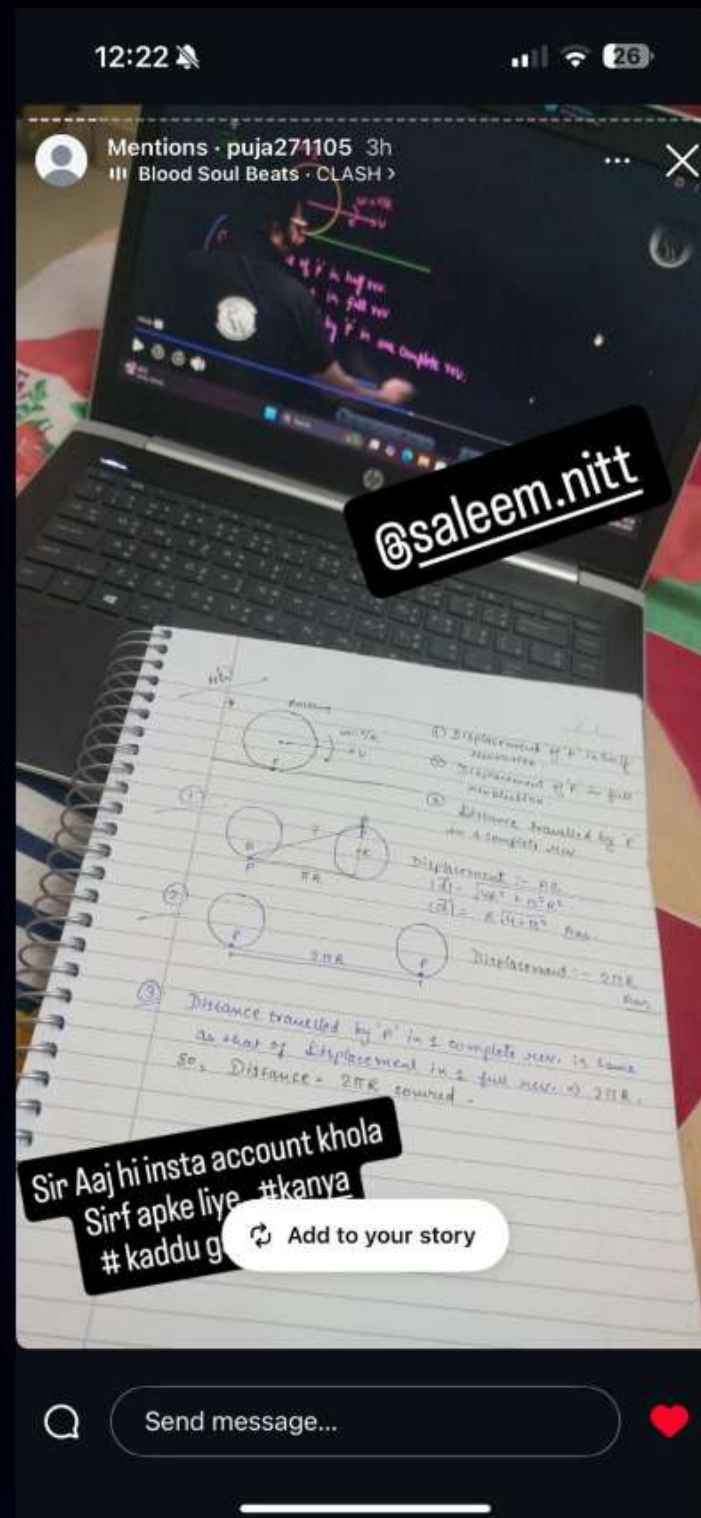 12:22
26
Mentions · puja271105 3h
Blood Soul Beats · CLASH >
of 'P' in half rev
in full rev
by 'P' in one complete rev.
@saleem.nitt
① Displacement of 'P' in half
revolution.
② Displacement of 'P' in full
revolution.
③ Distance travelled by 'P'
in 1 complete rev
①
P
R
πR
P
Displacement :-
|d| = √4R² + π²R²
|d| = R√4+π² Ans.
②
P
2πR
P
Displacement :- 2πR
Ans
③ Distance travelled by 'P' in 1 complete rev. is same
as that of Displacement in 1 full rev. ⇒ 2πR.
So, Distance = 2πR covered.
Sir Aaj hi insta account khola
Sirf apke liye #kanya
# kaddu
Add to your story
Send message...